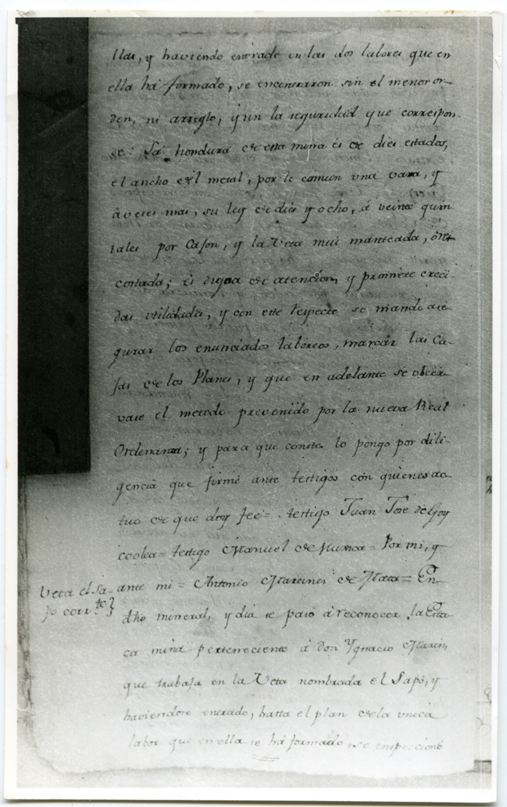 llas, y haviendo entrado en las dos labores que en
ella há formado, se encontraron sin el menor or-
den, ni arreglo, y sin la seguridad que correspon-
de: La hondura de esta mina és de dies estados,
el ancho del metal, por lo comun una vara, y
àveces mas, su ley de diés y ocho, à veinte quin
tales por Cajon, y la Veta mui manteada, ó re
costada; és digna de atencion, y promete creci
das utilidades, y con este respecto se mandó ase
gurar los enunciados labores, marcar las Ca-
jas de los Planes, y que en adelante se obser
vase el metodo prevenido por la nueva Real
Ordenanza; y para que conste lo pongo por dili-
gencia que firmé ante testigos con quienes ac
tuo de que doy feé= testigo Juan Jose de Goy
coolea= testigo Manuel de = Por mi, y
ante mi = Antonio Martines de Mata= En
Veta el Sa-
po corr.te
dho mineral, y dia se pasó à reconocer la Esta
ca mina perteneciente à don Ygnacio Marin,
que trabaja en la Veta nombrada el Sapo, y
haviendose entrado, hasta el plan de la unica
labor que en ella se há formado, se inspeccionó